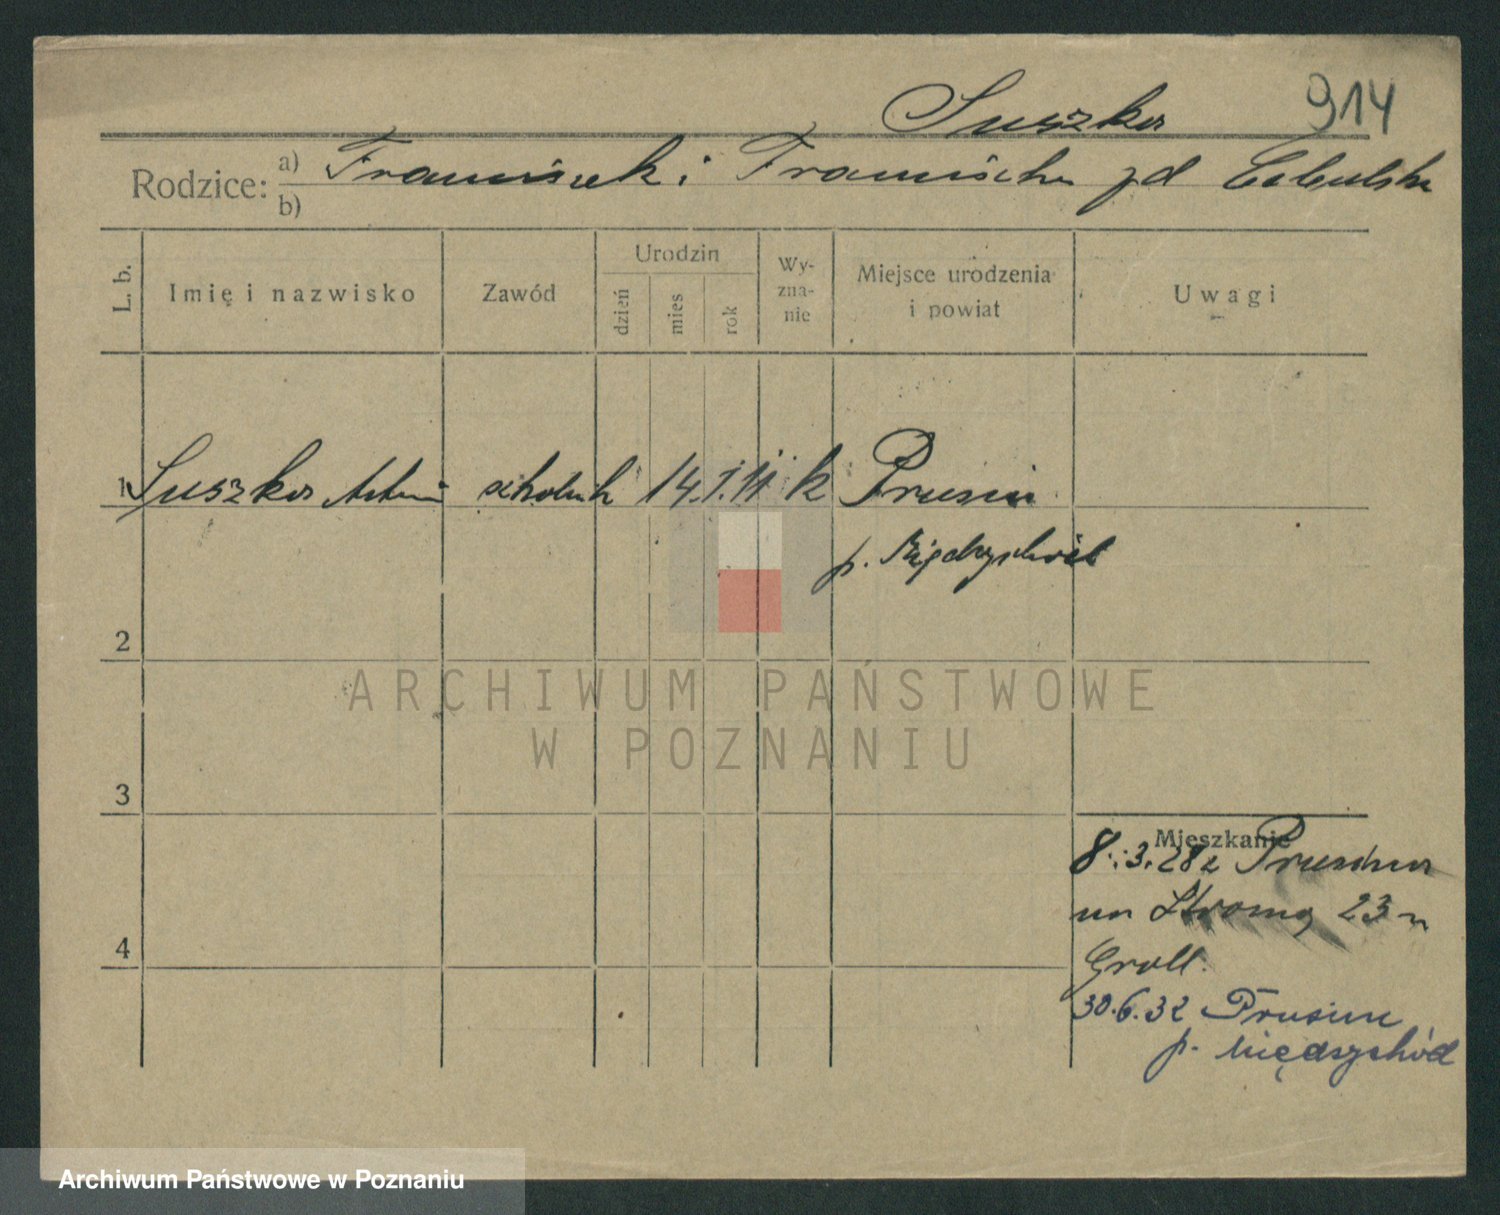 Suszka 914
Rodzice: a) Franciszek i Franciszka zd
b)
L. b. Imię i nazwisko Zawód Urodzin dzień mies rok Wy-zna-nie Miejsce urodzenia i powiat Uwagi
1 Suszka 14.1.11 k Prusim
p. Międzychód
2
ARCHIWUM PAŃSTWOWE
W POZNANIU
3
Mieszkanie
8.3.28 z
23
4
Groll.
30.6.32 Prusim
p. Międzychód
Archiwum Państwowe w Poznaniu